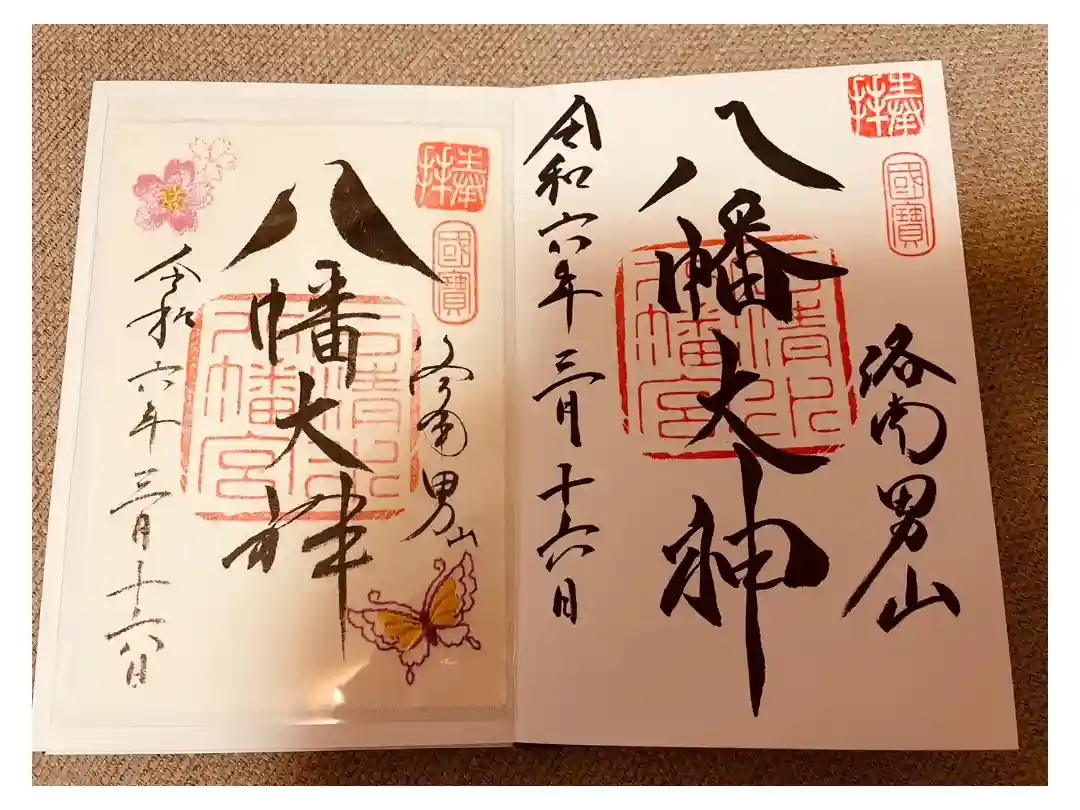 奉拝
國寶
洛南男山
八幡大神
石清水
八幡宮
令和六年 三月十六日
奉拝
國寶
洛南男山
八幡大神
石清水
八幡宮
令和六年 三月十六日